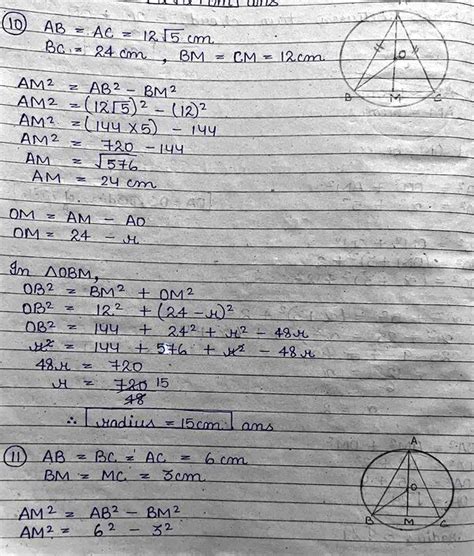 (10) AB = AC = 12√5 cm
BC = 24 cm , BM = CM = 12cm
A
O
B M C
AM² = AB² - BM²
AM² = (12√5)² - (12)²
AM² = (144 × 5) - 144
AM² = 720 - 144
AM = √576
AM = 24 cm
OM = AM - AO
OM = 24 - r
In ΔOBM,
OB² = BM² + OM²
OB² = 12² + (24 - r)²
OB² = 144 + 24² + r² - 48r
r² = 144 + 576 + r² - 48r
48r = 720
r = 720 15
48
∴ radius = 15cm ans
(11) AB = BC = AC = 6 cm
BM = MC = 3cm
A
O
B M C
AM² = AB² - BM²
AM² = 6² - 3²